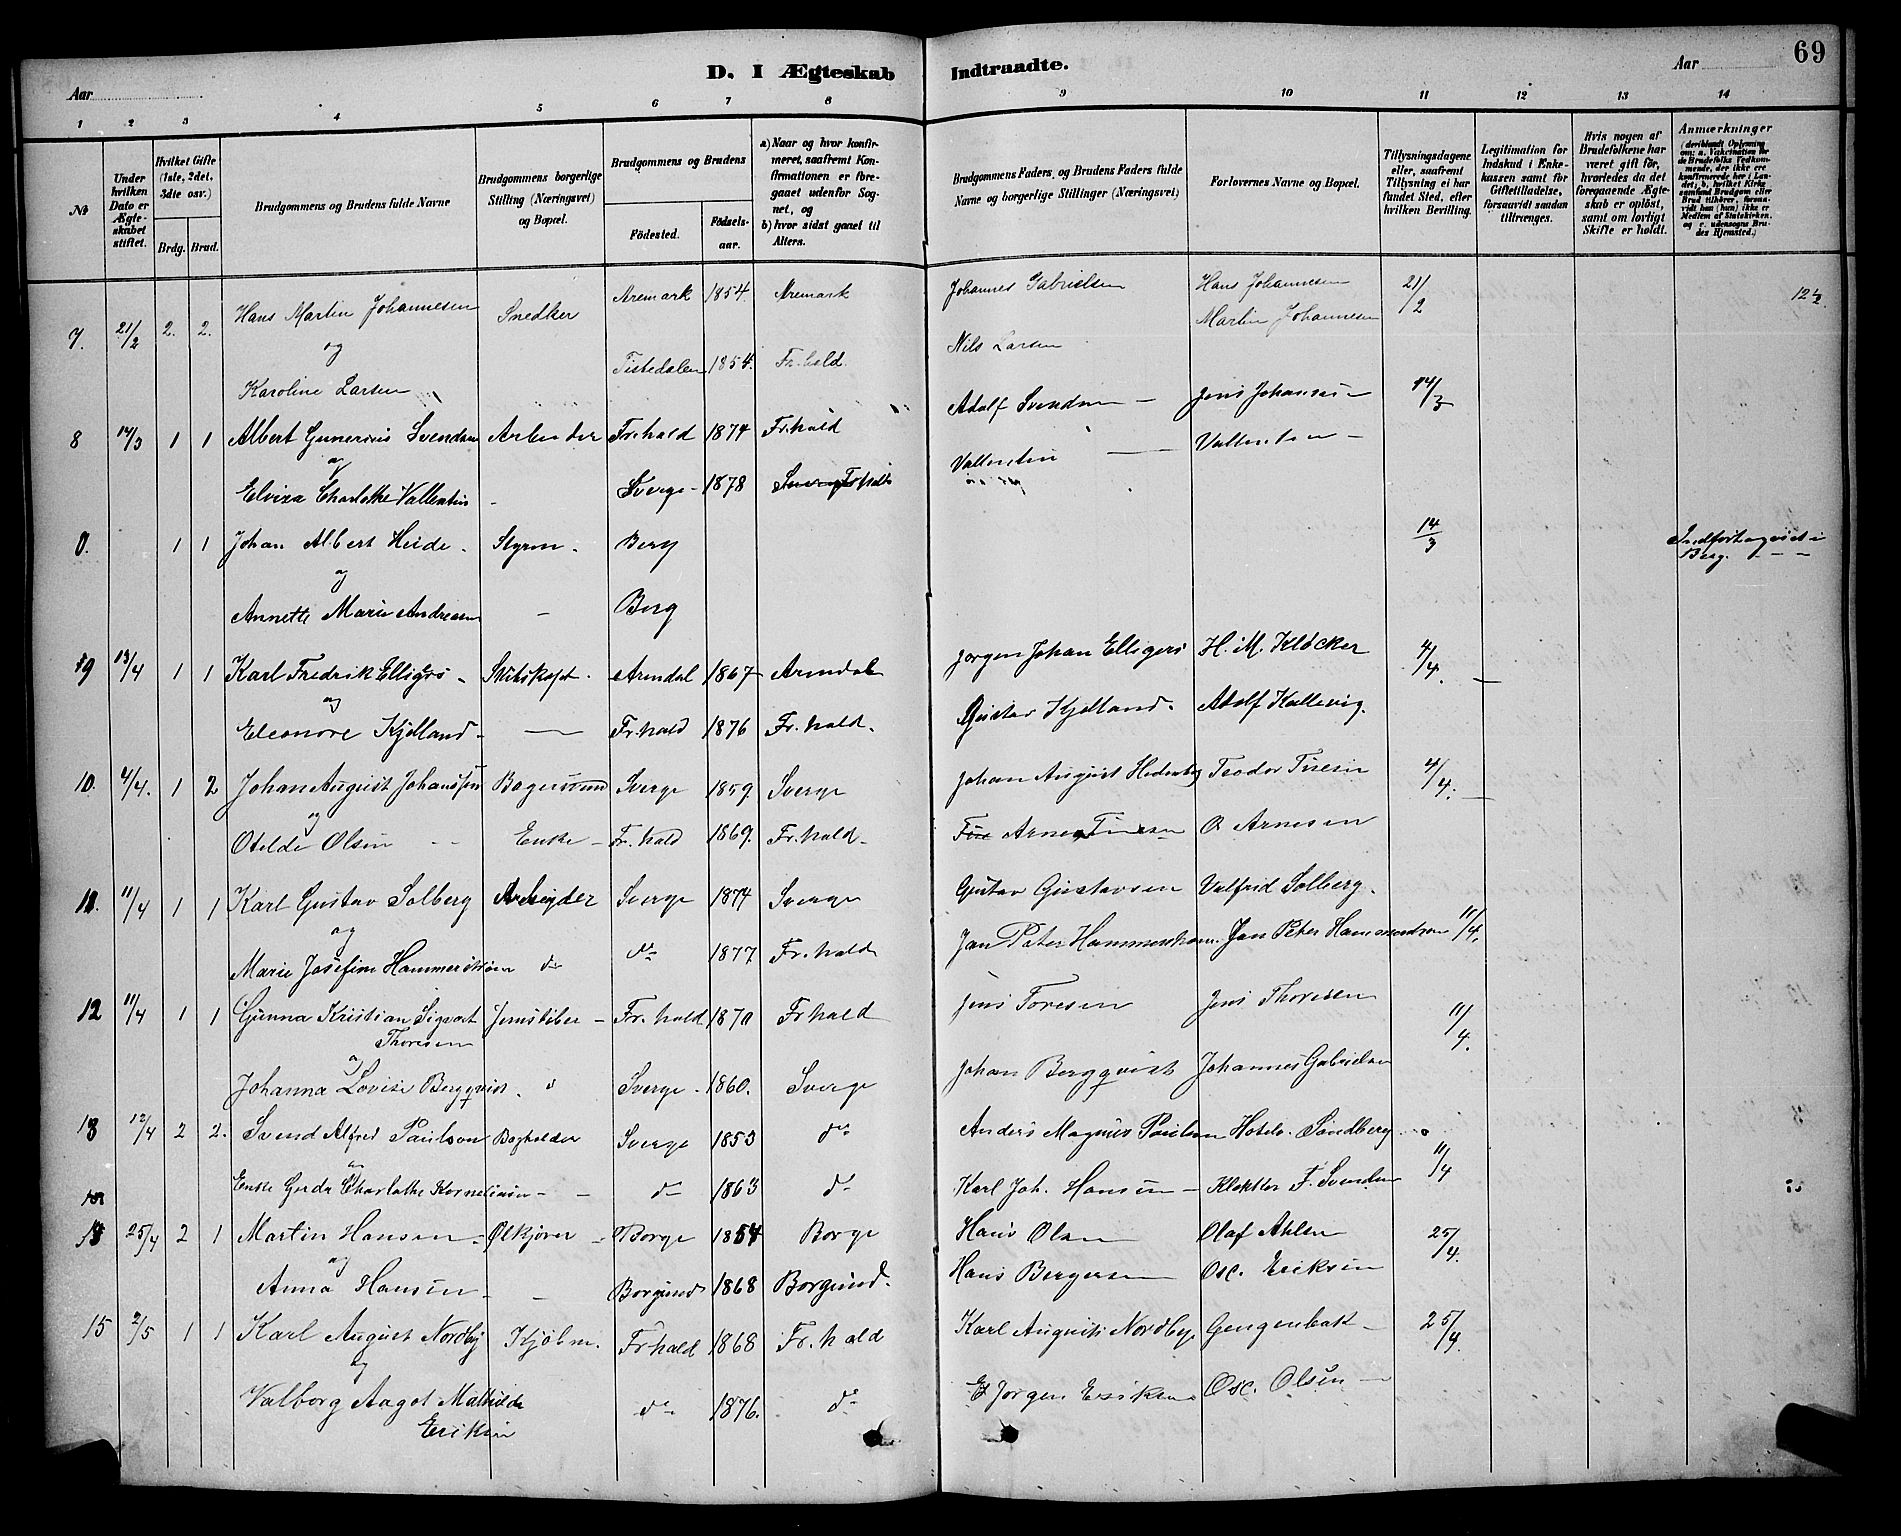 D. I Ægteskab Indtraadte.
69
Aar
Aar
1 2 3 4 5 6 7 8 9 10 11 12 13 14
№
Under hvilken Dato er Ægteskabet stiftet.
Hvilket Gifte (1ste, 2det, 3die osv.)
Brdg. Brud.
Brudgommens og Brudens fulde Navne
Brudgommens borgerlige Stilling (Næringsvei) og Bopæl.
Brudgommens og Brudens
Fødested.
Fødselsaar.
a) Naar og hvor konfirmeret, saafremt Konfirmationen er foregaaet udenfor Sognet, og
b) hvor sidst gaaet til Alters.
Brudgommens Faders og Brudens Faders fulde Navne og borgerlige Stillinger (Næringsvei)
Forlovernes Navne og Bopæl.
Tillysningsdagene eller, saafremt Tillysning ei har fundet Sted, efter hvilken Bevilling.
Legitimation for Indskud i Enkekassen samt for Giftetilladelse, forsaavidt saadan tiltrænges.
Hvis nogen af Brudefolkene har været gift før, hvorledes da det foregaaende Ægteskab er opløst, samt om lovligt Skifte er holdt.
Anmærkninger
(deriblandt Oplysning om: a. Vakcination for de Brudefolks Vedkommende, der ikke ere konfirmerede her i Landet; b. hvilket Kirkesamfund Brudgom eller Brud tilhører, forsaavidt han (hun) ikke er Medlem af Statskirken, og c. udensogns Brudes Hjemsted.)
7. 21/2 2. 2. Hans Martin Johannesen Snedker Aremark 1854. Aremark Johannes Gabrielsen Hans Johannesen 21/2 12 1/2.
Martin Johannesen
og
Nils Larsen
Karoline Larsen Tistedalen 1854. Fr.hald.
8 14/3 1 1 Albert Gunerius Svendsen Arbeider Fr.hald 1874 Fr.hald Adolf Svendsen — Jens Johansen — 14/3
og
Elvira Charlotte Vallentin - Sverge - 1878 Fr.hald Vallentin — Vallentin —
0. 1 1 Johan Albert Heide. Styrm. Berg 14/3 Indført og viet i Berg. - - -
og
Annette Marie Andresen — Berg
9 13/4 1 1 Karl Fredrik Elligers - Skibskapt. Arendal 1867 Arendal Jørgen Johan Elligers H. M. Kløcker 4/4.
og
Eleonore Kjelland - — Fr.hald 1876 Fr.hald. Gustav Kjelland. Adolf Kallevig.
10. 4/4. 1 2 Johan August Johanssen Bagersvend Sverge 1859. Sverge Johan August Hedenberg Teodor Tuesen 4/4.
og
Otelde Olsen - - Enke - Fr.hald 1869. Fr.hald - Arne Tuesen O Arnesen
11. 11/4 1 1 Karl Gustav Solberg Arbeider Sverge 1874 Sverge Gustav Gustavsen Valfrid Solberg.
og
Marie Josefine Hammerstrøm do do 1877 Fr.hald Jan Peter Hammerstrøm. Jan Peter Hammerstrøm 11/4.
12 11/4 1 1 Gunna Kristian Sigvart Thoresen Jernstøber - Fr.hald 1870 Frhald Jens Toresen Jens Thoresen 11/4.
og
Johanna Lovise Bergqvist. Sverge - 1860. Sverge Johan Bergqvist Johannes Gabrielsen
13 12/4 2 2. Svend Alfred Paulson Bogholder Sverge 1853 do Anders Magnus Paulson Hotelv. Sandberg 11/4
og
Enke Gerda Charlotte Korneliusen - - do 1863 do Karl Joh. Hansen - Klokker F. Svendsen
25/4 2 1 Martin Hansen - Ølkjører - Borge 1854 Borge Hans Olsen Olaf Ahlsen 25/4.
og
Anna Hansen - - Borgund 1868 Borgund. Hans Bergersen Osc. Eriksen
15 2/5 1 1 Karl August Nordby Kjøbm. Frhald 1868 Fr.hald Karl August Nordbye Gengenbak - 25/4.
og
Valborg Aagot Mathilde Eriksen do 1876. do Jørgen Eriksen Osc. Olsen —